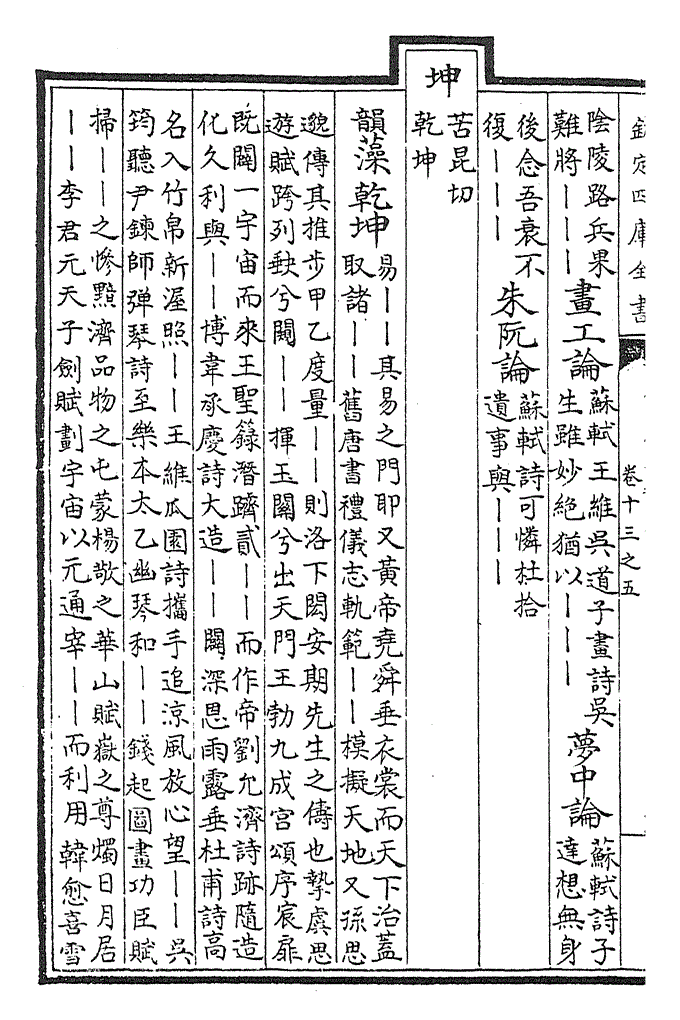 欽定四庫全書
卷十三之五
陰陵路兵果
難將｜｜｜
畫工論
蘇軾王維吳道子畫詩吳
生雖妙絶猶以｜｜｜
夢中論
蘇軾詩子
達想無身
後念吾衰不
復｜｜｜
朱阮論
蘇軾詩可憐杜拾
遺事與｜｜｜
坤
苦昆切
乾坤
韻藻乾坤
易｜｜其易之門耶又黃帝堯舜垂衣裳而天下治蓋
取諸｜｜舊唐書禮儀志軌範｜｜模擬天地又孫思
邈傳其推步甲乙度量｜｜則洛下閎安期先生之儔也摯虞思
遊賦跨列缺兮闚｜｜揮玉關兮出天門王勃九成宮頌序宸扉
既闢一宇宙而來王聖籙潛躋貳｜｜而作帝劉允濟詩跡隨造
化久利與｜｜博韋承慶詩大造｜｜闢深思雨露垂杜甫詩高
名入竹帛新渥照｜｜王維瓜園詩攜手追涼風放心望｜｜吳
筠聽尹鍊師弹琴詩至樂本太乙幽琴和｜｜錢起圖畫功臣賦
掃｜｜之慘黷濟品物之屯蒙楊敬之華山賦嶽之尊燭日月居
｜｜李君元天子劍賦劃宇宙以元通宰｜｜而利用韓愈喜雪